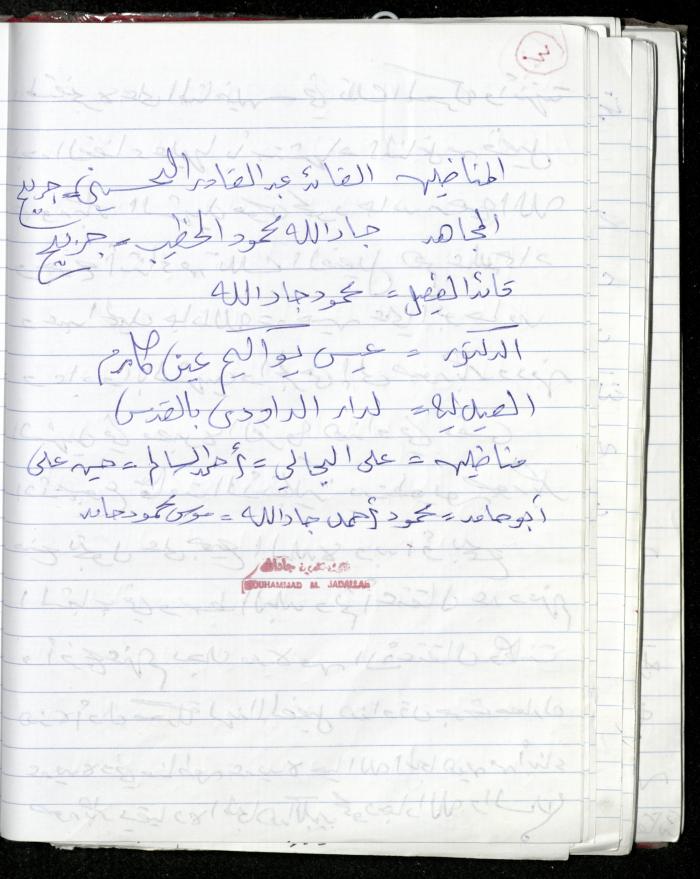 ٣
المناضلين القائد عبد القادر الحسيني = جريح
المجاهد جاد الله محمود الخطيب = جريح
قائد الفصيل = محمود جاد الله
الدكتور = عيسى يواكيم عين كارم
الصيدلية = لدار الداودي بالقدس
مناضلين = علي = أحمد السالم = حسين علي
أبو حامد = محمود أحمد جاد الله = موسى محمود حامد
محمد محمود جاد الله
MOUHAMMAD M. JADALLAH